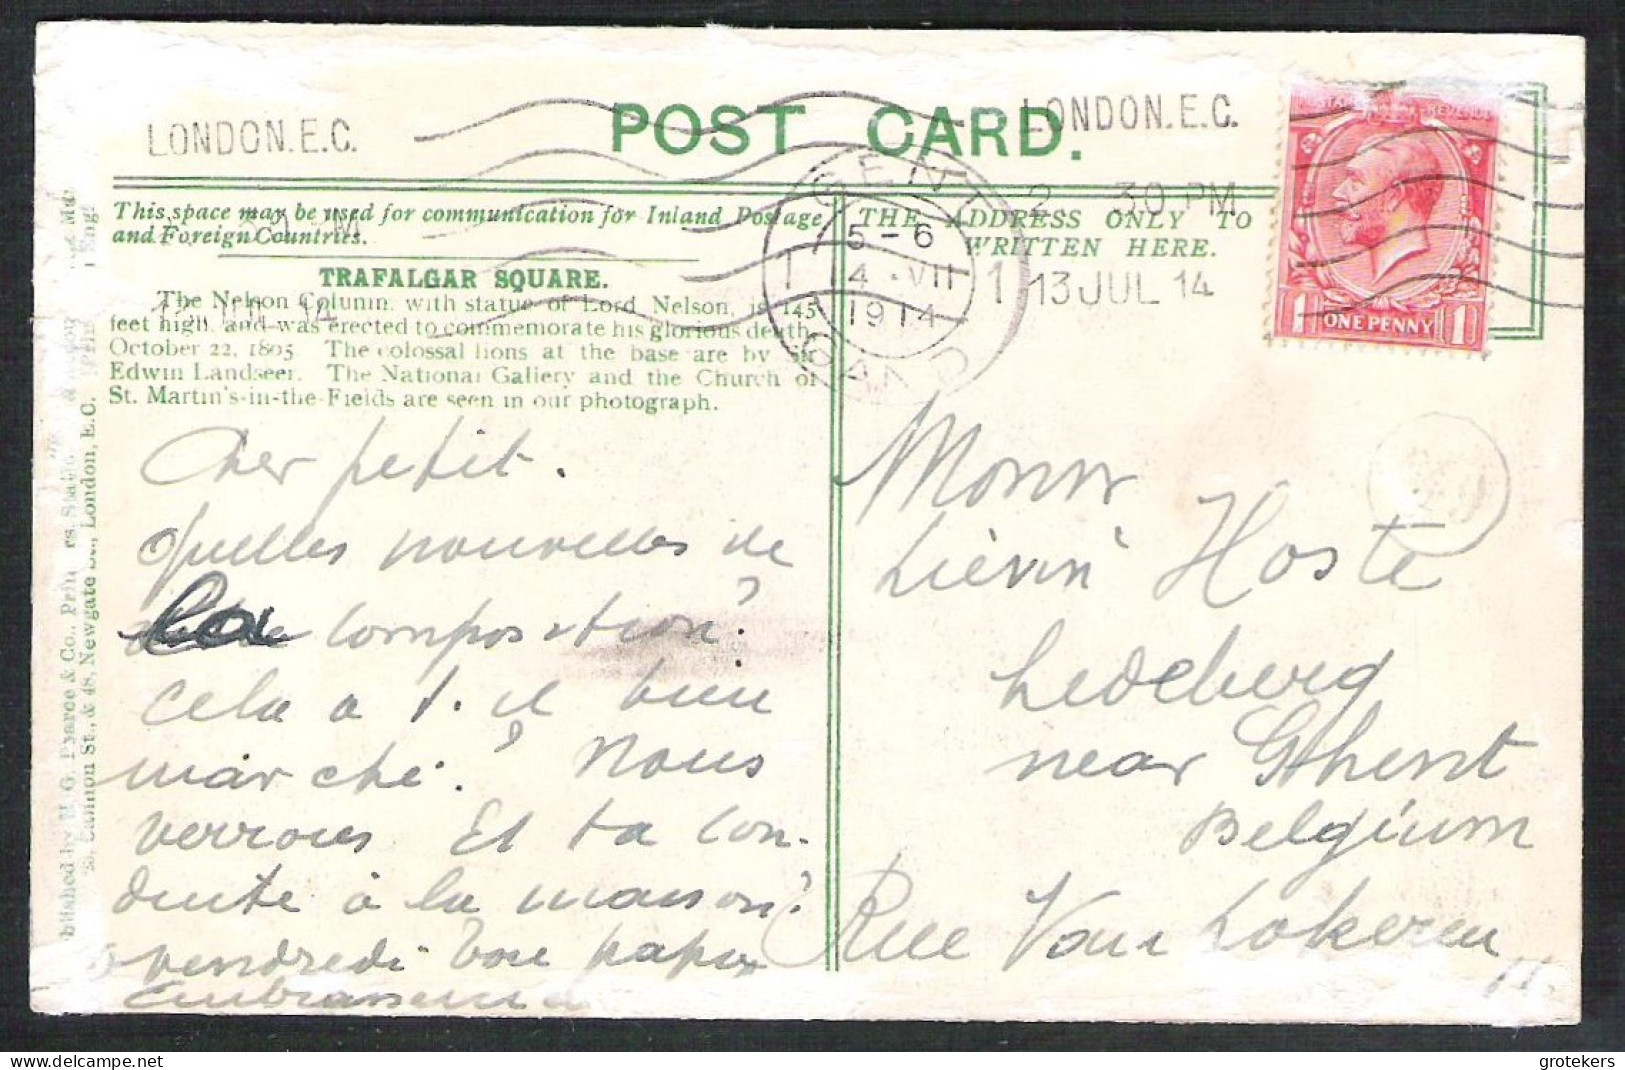 POST CARD.
LONDON. E.C.
LONDON. E.C.
2 30 PM
13 JUL 14
GENT
5-6
14 · VII
1914
GAND
1 1
POSTAGE REVENUE
1 ONE PENNY 1
This space may be used for communication for Inland Postage
and Foreign Countries.
THE ADDRESS ONLY TO
WRITTEN HERE.
TRAFALGAR SQUARE.
The Nelson Column, with statue of Lord Nelson, is 145
feet high, and was erected to commemorate his glorious death,
October 22, 1805. The colossal lions at the base are by Sir
Edwin Landseer. The National Gallery and the Church of
St. Martin's-in-the-Fields are seen in our photograph.
Cher petit.
Quelles nouvelles de
la composition?
Cela a t. il bien
marché? Nous
verrons Et ta con-
duite à la maison?
vendredi Ton papa
Monsr
Liévin Hoste
Ledeberg
near Ghent
Belgium
Rue Van Lokeren
11.
blished by H. G. Pearce & Co.,
Cannon St., & 48, Newgate St., London, E.C.
grotekers